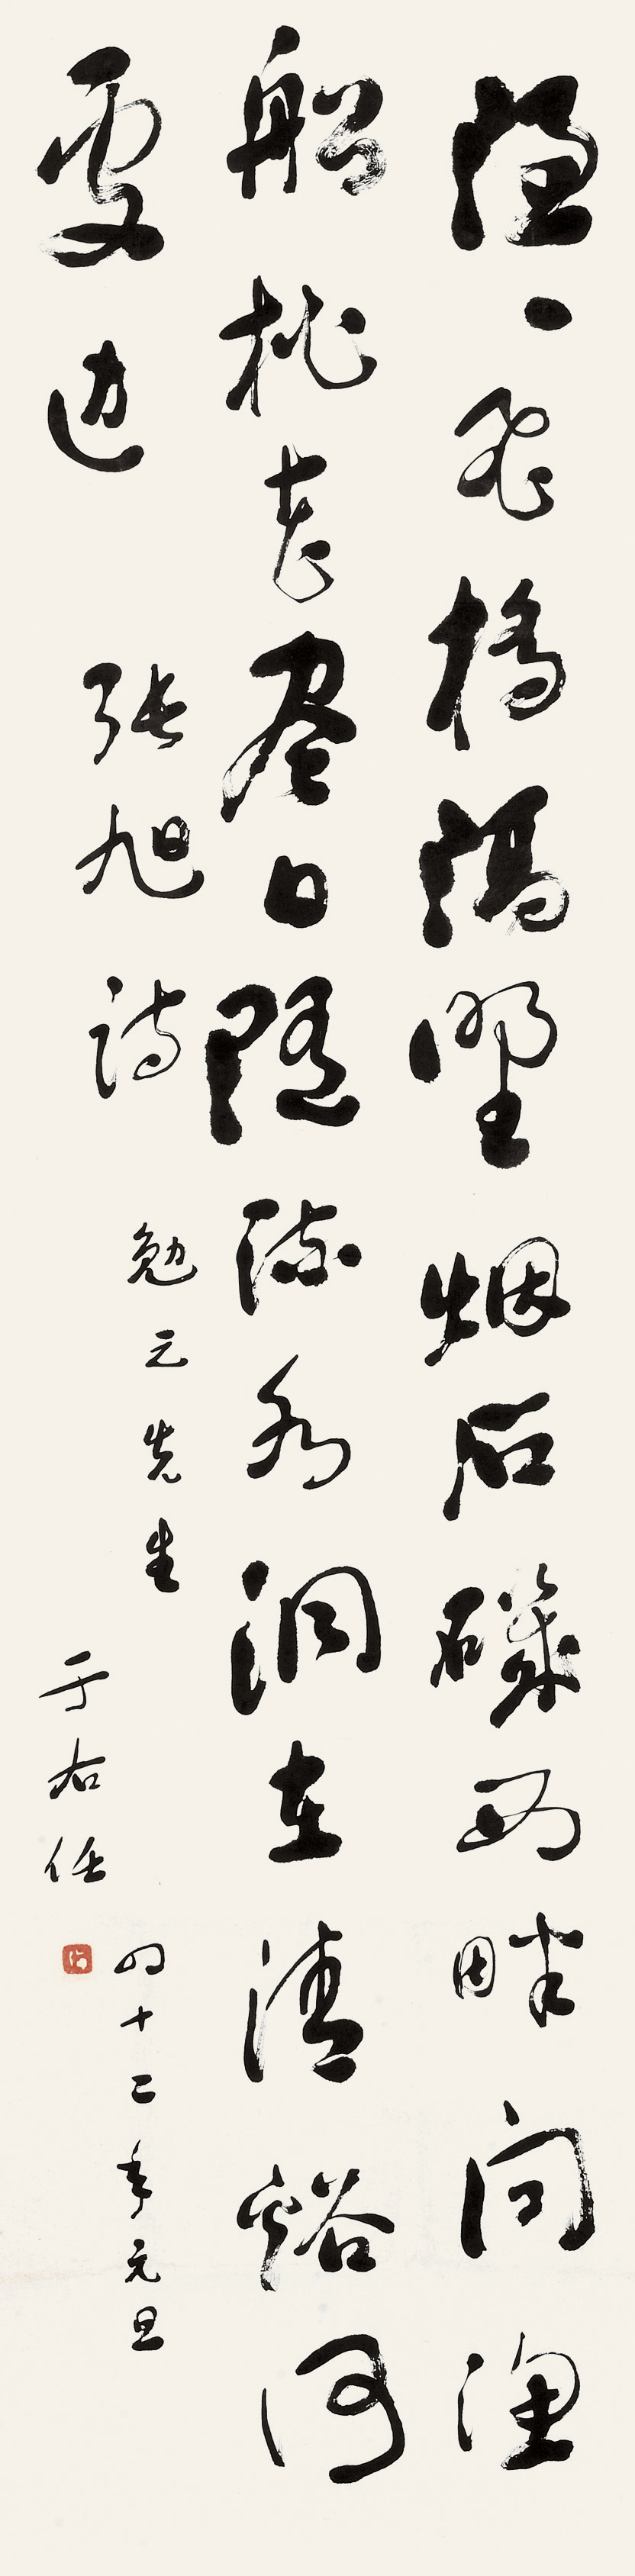 隱〻飛橋隔野烟石磯西畔問漁
船桃花盡日隨流水洞在清谿何
處邊
張旭詩
勉元先生
于右任
四十二年元旦